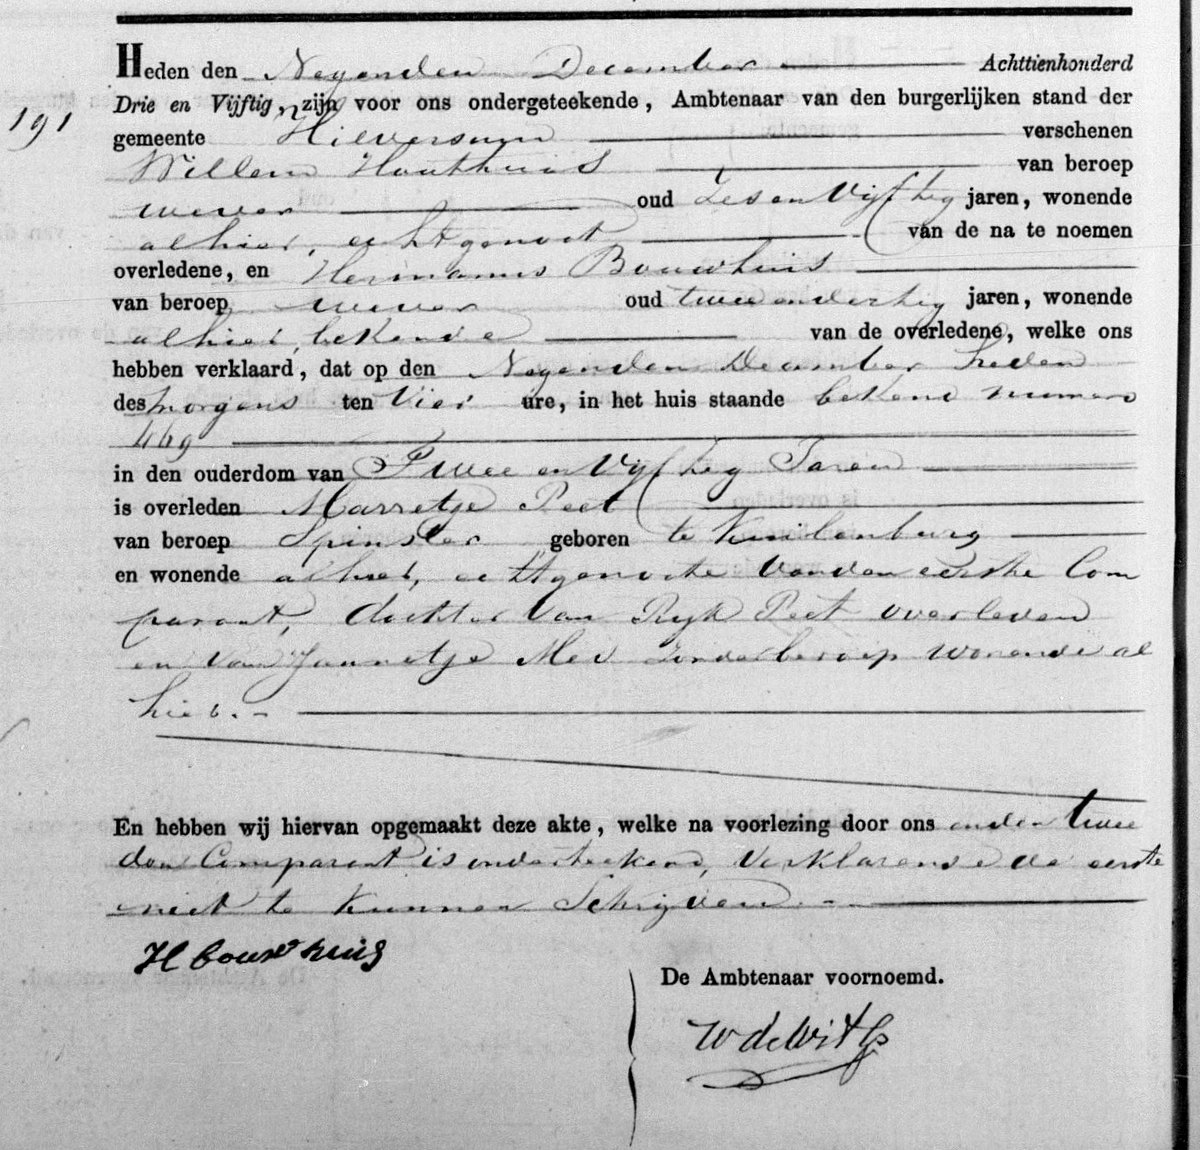 Heden den Negenden December Achttienhonderd
Drie en Vijftig, zijn voor ons ondergeteekende, Ambtenaar van den burgerlijken stand der
191
gemeente Hilversum verschenen
Willem Houthuis van beroep
wever oud Zes en Vijftig jaren, wonende
alhier, echtgenoot van de na te noemen
overledene, en Hermanus Bouwhuis
van beroep wever oud twee en dertig jaren, wonende
alhier, bekende van de overledene, welke ons
hebben verklaard, dat op den Negenden December heden
des morgens ten Vier ure, in het huis staande bekend numero
469
in den ouderdom van Twee en Vijftig Jaren
is overleden Marretje Peet
van beroep Spinster geboren te Kuilenburg
en wonende alhier, echtgenoote van den eerste Com
parant, dochter van Ryk Peet overleden
en van Jannetje Mev zonder beroep wonende al
hier.
En hebben wij hiervan opgemaakt deze akte, welke na voorlezing door ons en den twee
den Comparant is onderteekend, verklarende de eerste
niet te kunnen Schrijven.
H bouwhuis
De Ambtenaar voornoemd.
W de Wit